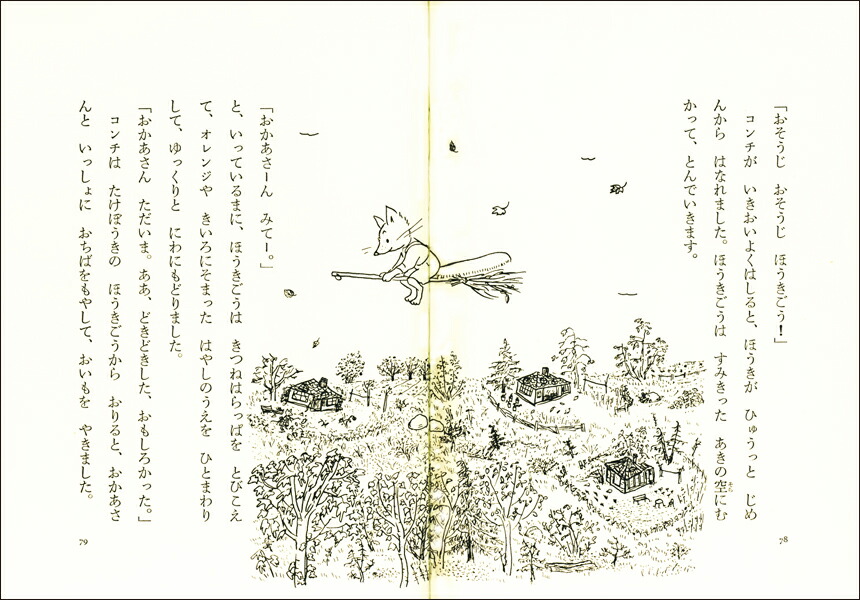 「おそうじ　おそうじ　ほうきごう！」
　コンチが　いきおいよくはしると、ほうきが　ひゅうっと　じめ
んから　はなれました。ほうきごうは　すみきった　あきの空にむ
かって、とんでいきます。
78
「おかあさーん　みてー。」
と、いっているまに、ほうきごうは　きつねはらっぱを　とびこえ
て、オレンジや　きいろにそまった　はやしのうえを　ひとまわり
して、ゆっくりと　にわにもどりました。
「おかあさん　ただいま。ああ、どきどきした、おもしろかった。」
　コンチは　たけぼうきの　ほうきごうから　おりると、おかあさ
んと　いっしょに　おちばをもやして、おいもを　やきました。
79